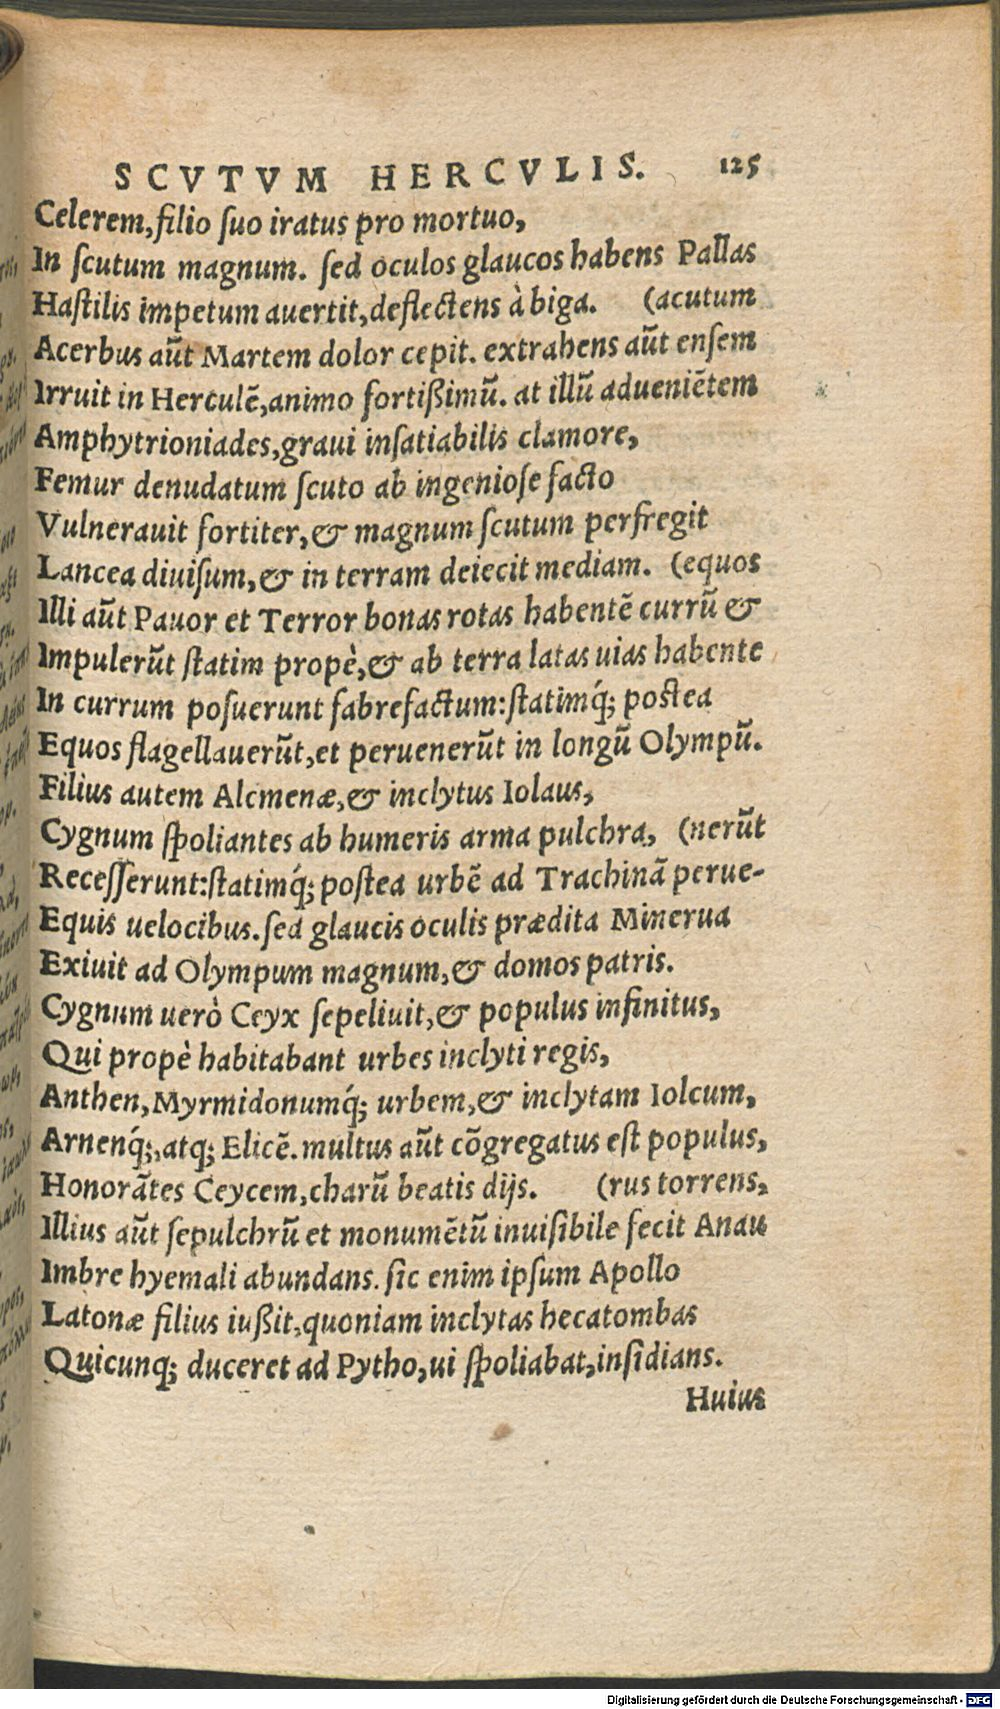 SCVTVM HERCVLIS. 125
Celerem, filio ſuo iratus pro mortuo,
In ſcutum magnum. ſed oculos glaucos habens Pallas
Haſtilis impetum auertit, deflectens à biga. (acutum
Acerbus aūt Martem dolor cepit. extrahens aūt enſem
Irruit in Herculē, animo fortiſsimū. at illū adueniētem
Amphytrioniades, graui inſatiabilis clamore,
Femur denudatum ſcuto ab ingenioſe facto
Vulnerauit fortiter, & magnum ſcutum perfregit
Lancea diuiſum, & in terram deiecit mediam. (equos
Illi aūt Pauor et Terror bonas rotas habentē currū &
Impulerūt ſtatim propè, & ab terra latas uias habente
In currum poſuerunt fabrefactum: ſtatimq́; poſtea
Equos flagellauerūt, et peruenerūt in longū Olympū.
Filius autem Alcmenæ, & inclytus Iolaus,
Cygnum ſpoliantes ab humeris arma pulchra, (nerūt
Receſſerunt: ſtatimq́; poſtea urbē ad Trachinā perue-
Equis uelocibus. ſed glaucis oculis prædita Minerua
Exiuit ad Olympum magnum, & domos patris.
Cygnum uerò Ceyx ſepeliuit, & populus infinitus,
Qui propè habitabant urbes inclyti regis,
Anthen, Myrmidonumq́; urbem, & inclytam Iolcum,
Arnenq́;, atq; Elicē. multus aūt cōgregatus eſt populus,
Honorātes Ceycem, charū beatis dijs. (rus torrens,
Illius aūt ſepulchrū et monumētū inuiſibile fecit Anau
Imbre hyemali abundans. ſic enim ipſum Apollo
Latonæ filius iuſsit, quoniam inclytas hecatombas
Quicunq; duceret ad Pytho, ui ſpoliabat, inſidians.
Huius
Digitalisierung gefördert durch die Deutsche Forschungsgemeinschaft - DFG